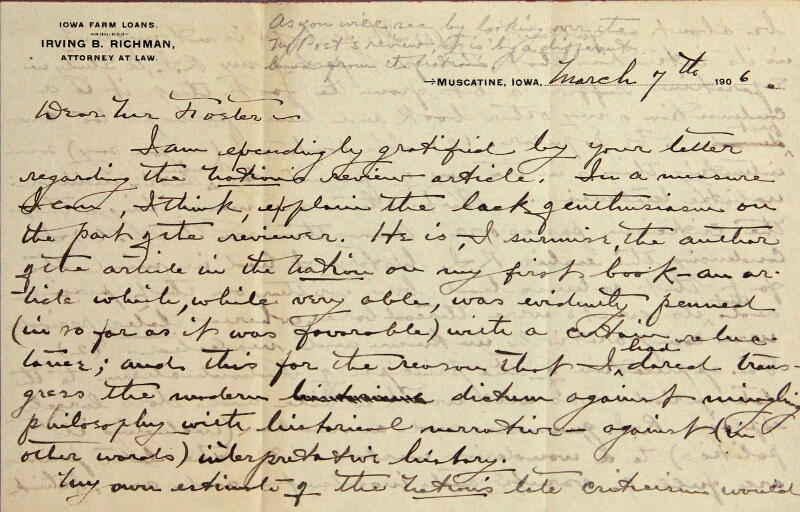 IOWA FARM LOANS.
IRVING B. RICHMAN,
ATTORNEY AT LAW.
As you will see by looking over the
N.Y. Post's review, it is by a different
hand from the Nation's
MUSCATINE, IOWA, March 7th 1906.
Dear Mr Foster—
I am exceedingly gratified by your letter
regarding the Nation's review article. In a measure
I can, I think, explain the lack of enthusiasm on
the part of the reviewer. He is, I surmise, the author
of the article in the Nation on my first book—an ar-
ticle which, while very able, was evidently penned
(in so far as it was favorable) with a certain reluc-
tance; and this for the reason that I had dared trans-
gress the modern dictum against mingling
philosophy with historical narrative—against (in
other words) interpretative history.
My own estimate of the Nation's late criticism would